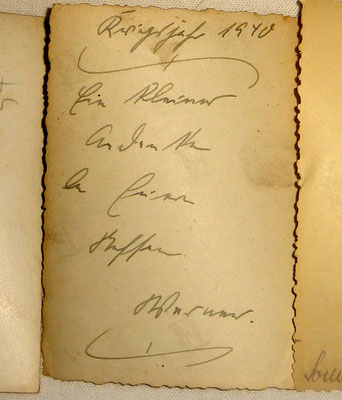 Kriegsjahr 1940
Ein kleines
Andenken
An Euren
Neffen
Werner.